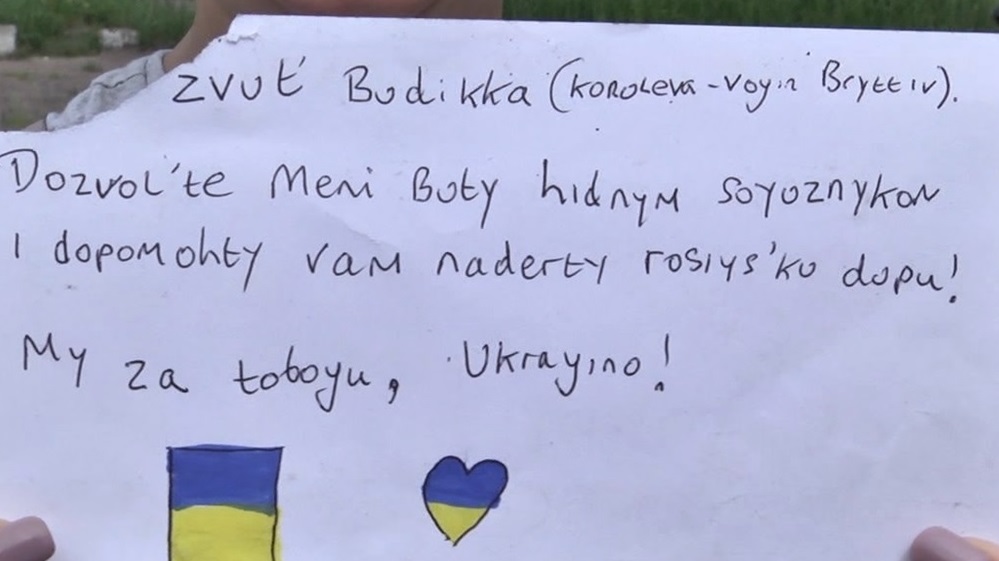 zvut' Budikka (koroleva-voyin Bryttiv).
Dozvol'te meni Buty hidnym soyuznykom
I dopomohty vam naderty rosiys'ku dopu!
My za toboyu, Ukrayino!